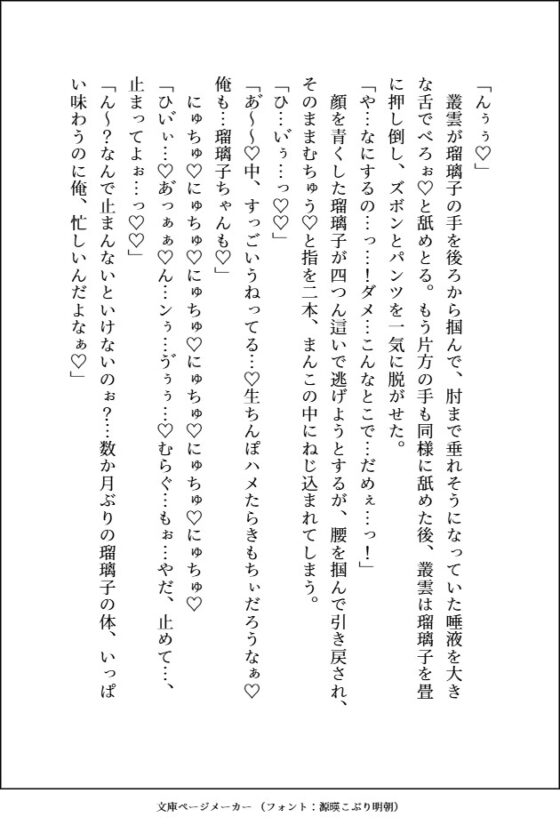 「んぅぅ♡」
　叢雲が瑠璃子の手を後ろから掴んで、肘まで垂れそうになっていた唾液を大き
な舌でべろぉ♡と舐めとる。もう片方の手も同様に舐めた後、叢雲は瑠璃子を畳
に押し倒し、ズボンとパンツを一気に脱がせた。
「や…なにするの…っ…！ダメ…こんなとこで…だめぇ…っ！」
　顔を青くした瑠璃子が四つん這いで逃げようとするが、腰を掴んで引き戻され、
そのままむちゅう♡と指を二本、まんこの中にねじ込まれてしまう。
「ひ…い゙ぅ…っ♡♡」
「あ゙〜〜♡中、すっごいうねってる…♡生ちんぽハメたらきもちぃだろうなぁ♡
俺も…瑠璃子ちゃんも♡」
　にゅちゅ♡にゅちゅ♡にゅちゅ♡にゅちゅ♡にゅちゅ♡にゅちゅ♡
「ひい゙ぃ…♡あ゙っぁぁ♡ん…ンぅ…ゔぅぅ…♡むらぐ…もぉ…やだ、止めて…、
止まってよぉ…っ♡♡」
「ん〜？なんで止まんないといけないのぉ？…数か月ぶりの瑠璃子の体、いっぱ
い味わうのに俺、忙しいんだよなぁ♡」
文庫ページメーカー（フォント：源暎こぶり明朝）